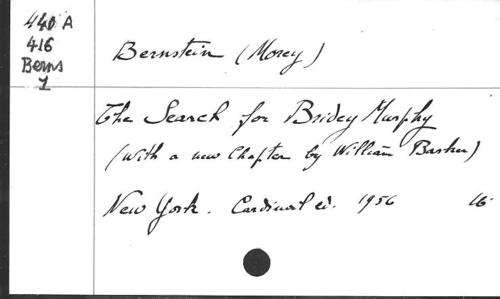 440 A
416
Berns
1
Bernstein (Morey)
The Search for Bridey Murphy
(with a new Chapter by William Barker)
New York. Cardinal ed. 1956 16